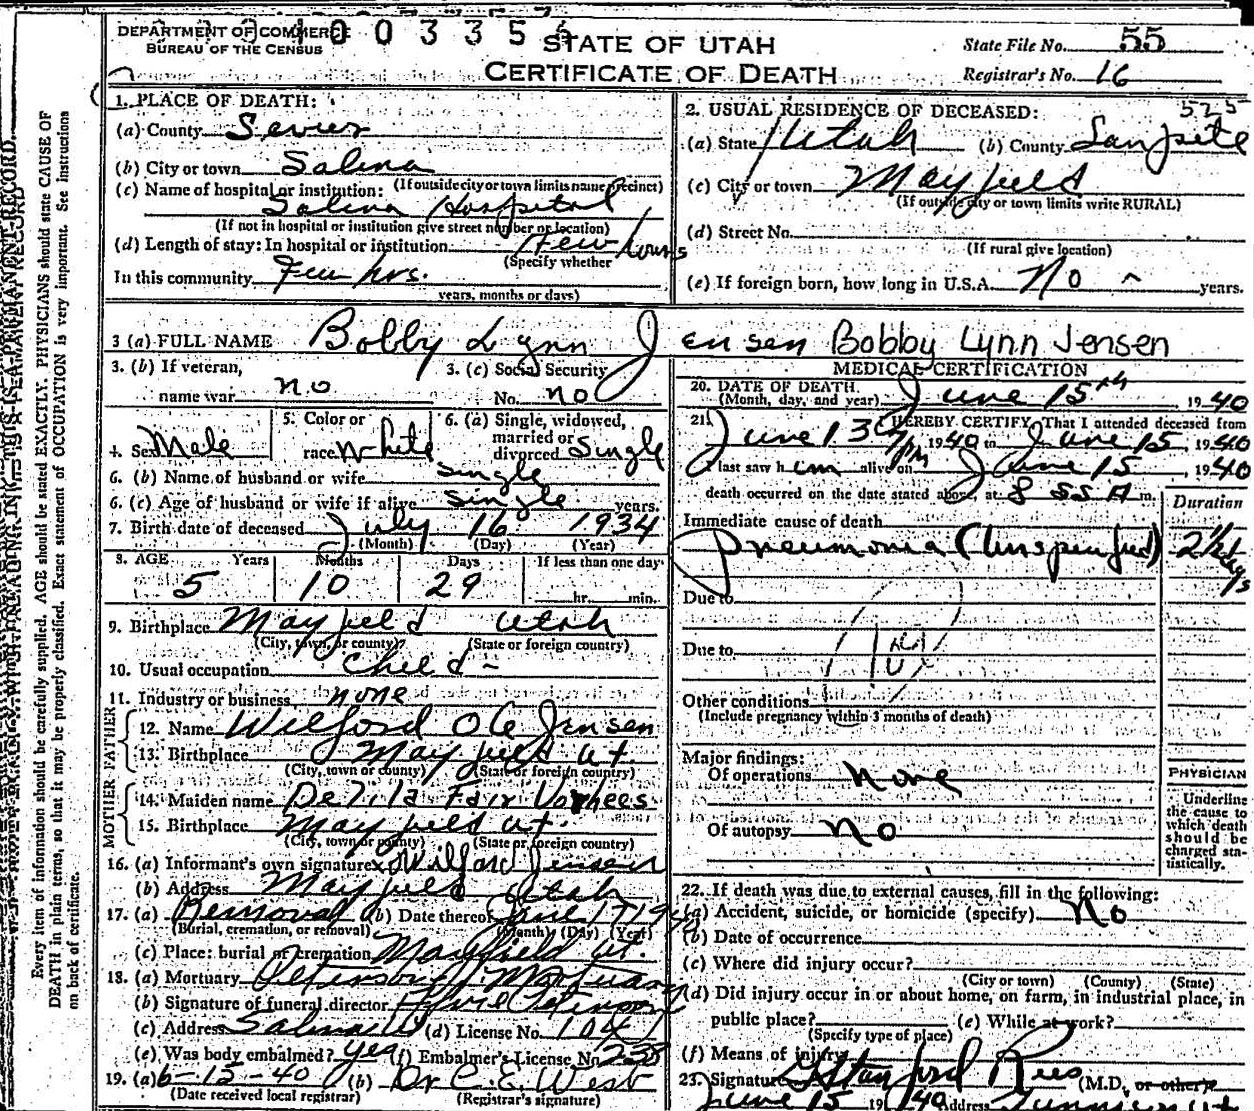 DEPARTMENT OF COMMERCE
BUREAU OF THE CENSUS
STATE OF UTAH
CERTIFICATE OF DEATH
State File No. 55
Registrar's No. 16
1. PLACE OF DEATH:
(a) County Sevier
(b) City or town Salina
(If outside city or town limits name precinct)
(c) Name of hospital or institution:
Salina Hospital
(If not in hospital or institution give street number or location)
(d) Length of stay: In hospital or institution Few hours
(Specify whether
In this community Few hrs.
years, months or days)
525
2. USUAL RESIDENCE OF DECEASED:
(a) State Utah (b) County Sanpete
(c) City or town Mayfield
(If outside city or town limits write RURAL)
(d) Street No.
(If rural give location)
(e) If foreign born, how long in U.S.A. No years.
3 (a) FULL NAME Bobby Lynn Jensen Bobby Lynn Jensen
3. (b) If veteran,
name war no
3. (c) Social Security
No. no
4. Sex Male
5. Color or
race White
6. (a) Single, widowed,
married or
divorced Single
6. (b) Name of husband or wife single
6. (c) Age of husband or wife if alive single years.
7. Birth date of deceased July 16 1934
(Month) (Day) (Year)
8. AGE Years Months Days If less than one day
5 10 29 hr. min.
9. Birthplace Mayfield Utah
(City, town, or county) (State or foreign country)
10. Usual occupation Child -
11. Industry or business none
FATHER
12. Name Wilford Ole Jensen
13. Birthplace Mayfield Ut.
(City, town or county) (State or foreign country)
MOTHER
14. Maiden name Delila Fair Vorhees
15. Birthplace Mayfield Ut.
(City, town or county) (State or foreign country)
16. (a) Informant's own signature x Wilford Jensen
(b) Address Mayfield Utah
17. (a) Removal (b) Date thereof June 17 194
(Burial, cremation, or removal) (Month) (Day) (Year)
(c) Place: burial or cremation Mayfield Ut.
18. (a) Mortuary Mortuary
(b) Signature of funeral director
(c) Address Salina (d) License No. 104
(e) Was body embalmed? yes (f) Embalmer's License No. 238
19. (a) 6-15-40 (b) Dr C. E. West
(Date received local registrar) (Registrar's signature)
MEDICAL CERTIFICATION
20. DATE OF DEATH
(Month, day, and year) June 15th 1940
21. I HEREBY CERTIFY, That I attended deceased from
June 13 1940 to June 15, 1940
I last saw him alive on June 15, 1940
death occurred on the date stated above, at 8 55 A m.
Immediate cause of death Duration
Pneumonia (Unspecified) 2½ days
Due to
Due to
Other conditions
(Include pregnancy within 3 months of death)
Major findings:
Of operations None
Of autopsy No
PHYSICIAN
Underline
the cause to
which death
should be
charged sta-
tistically.
22. If death was due to external causes, fill in the following:
(a) Accident, suicide, or homicide (specify) No
(b) Date of occurrence
(c) Where did injury occur?
(City or town) (County) (State)
(d) Did injury occur in or about home, on farm, in industrial place, in
public place? (e) While at work?
(Specify type of place)
(f) Means of injury
23. Signature G Stanford Rees (M.D. or other)
June 15 1940 Address
Every item of information should be carefully supplied. AGE should be stated EXACTLY. PHYSICIANS should state CAUSE OF
DEATH in plain terms, so that it may be properly classified. Exact statement of OCCUPATION is very important. See instructions
on back of certificate.